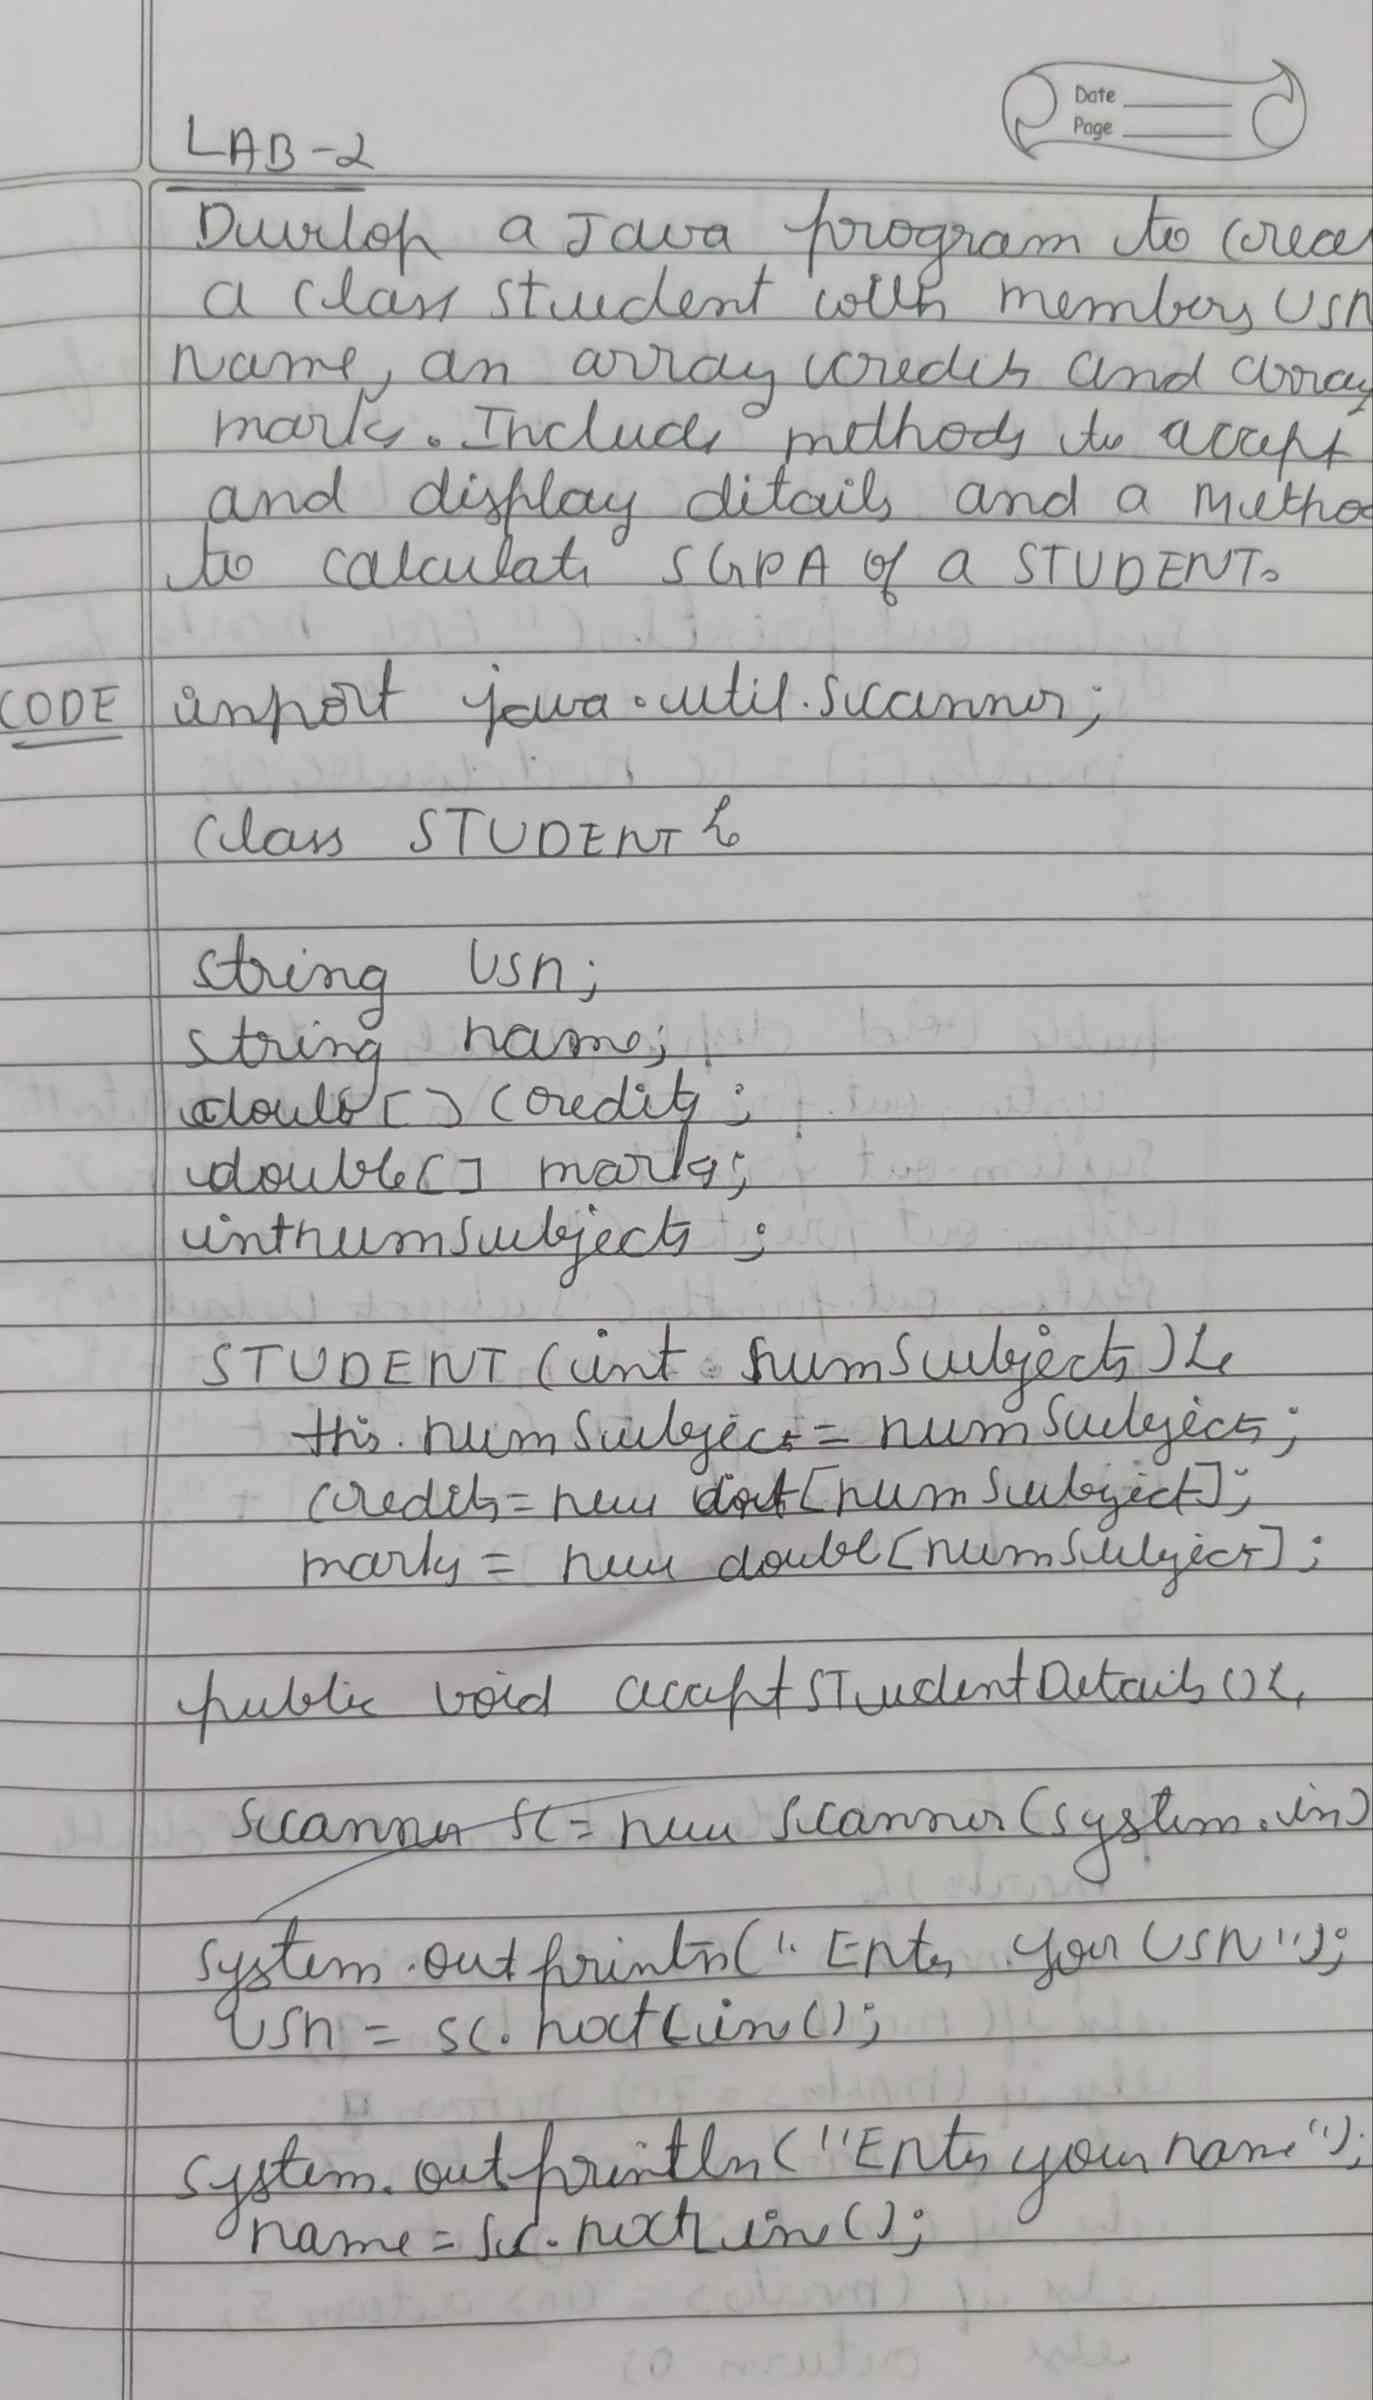 Date
Page
LAB-2
Develop a Java program to crea
a class student with members USN
name, an array credits and array
marks. Include methods to accept
and display ditails and a metho
to calculate SGPA of a STUDENT.
CODE import java.util.Scanner;
class STUDENT {
string USn;
string name;
double[] credits;
double[] marks;
intnumsubjects;
STUDENT (int numSubjects) {
this.numSubject = numSubjects;
credits = new [numSubject];
marks = new double[numSubject];
public void acceptSTudentDetails() {
Scanner sc = new Scanner(system.in)
system.out println(" Enter your USN");
USn = sc.nextLine();
system.out println("Enter your name");
name = sc.nextLine();